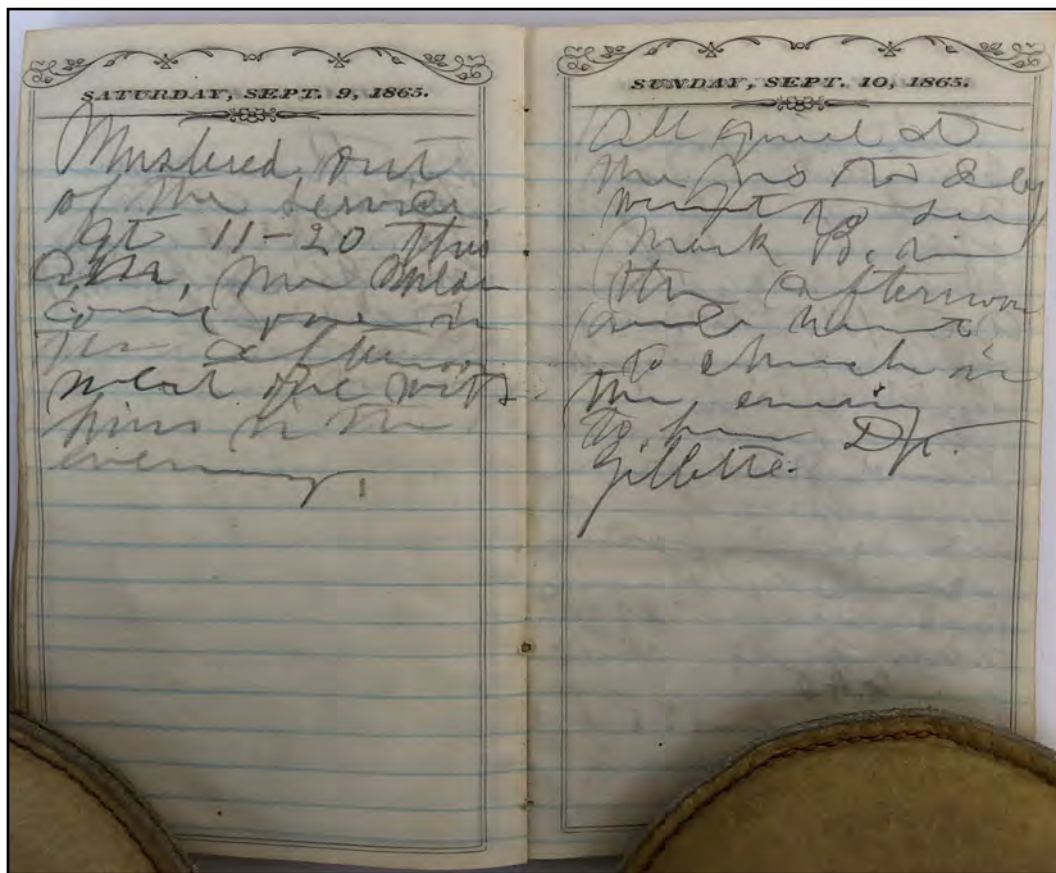 SATURDAY, SEPT. 9, 1865.
Mustered out
of the service
At 11-20 this
A.M,
in
the afternoon
went out with
him in the
evening.
SUNDAY, SEPT. 10, 1865.
All quiet at
the to day
went to see
Mark B. in
the afternoon
and went
to church in
the evening
to hear Dr.
Gillette.